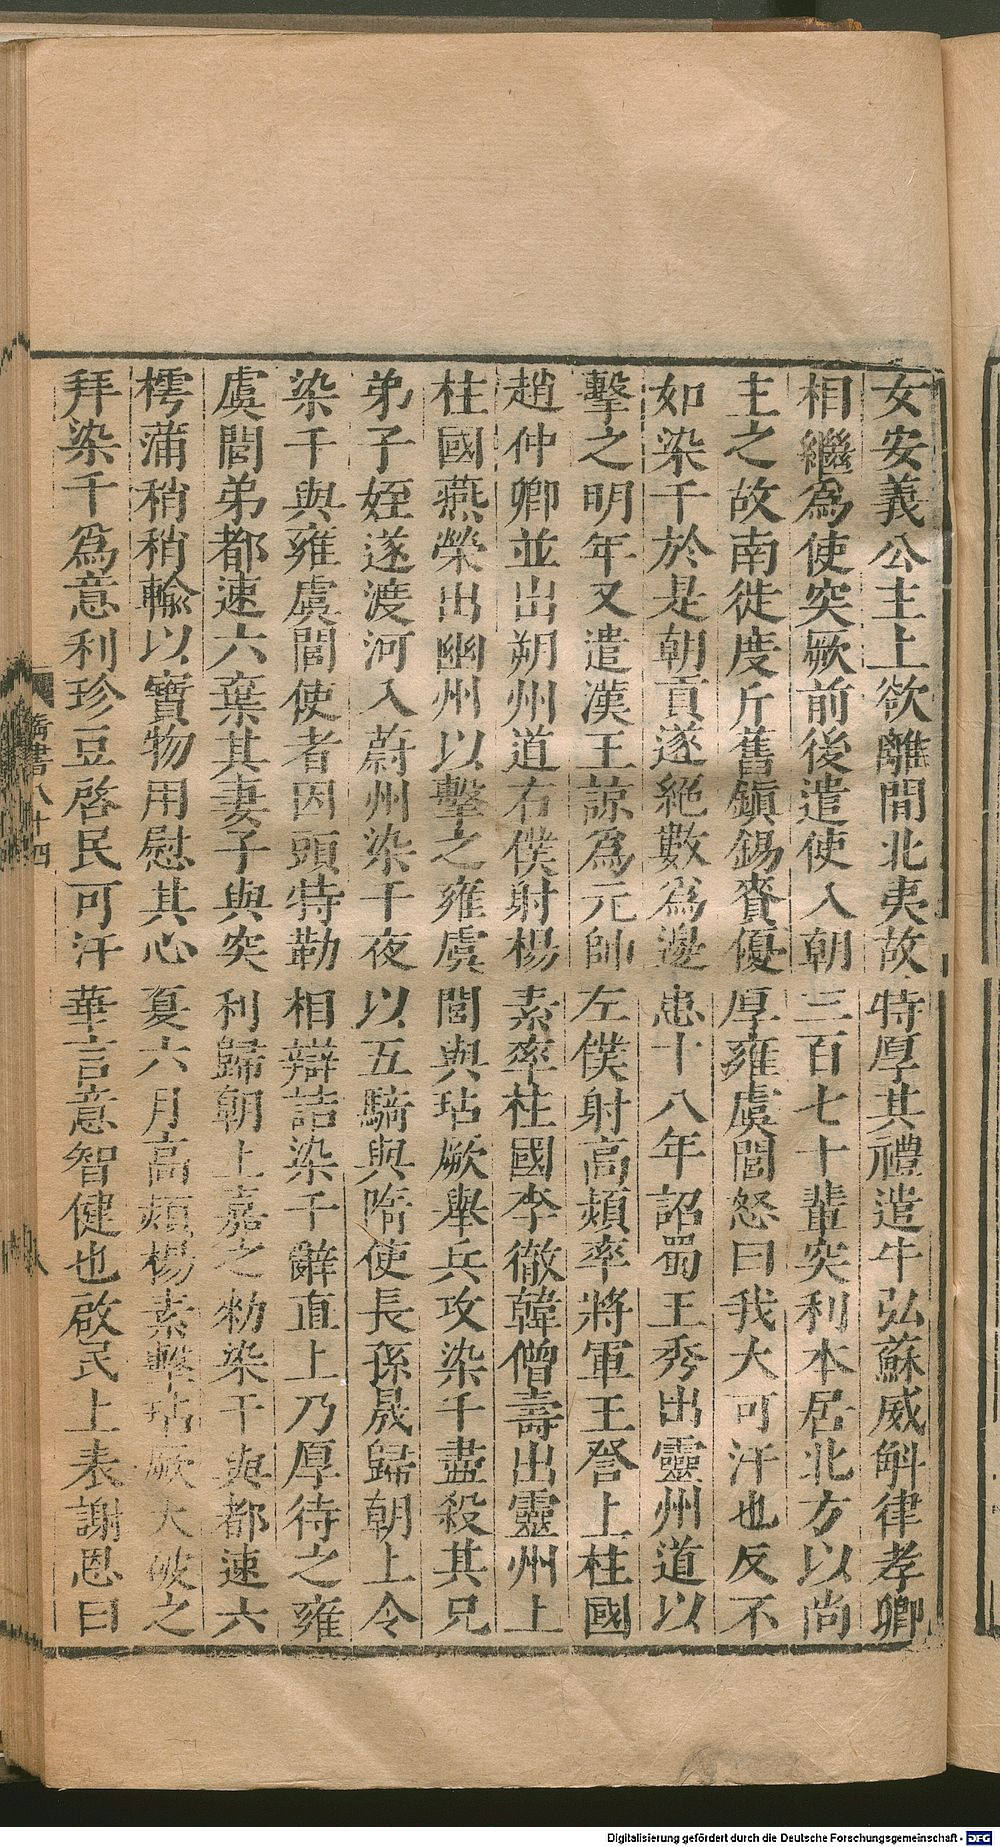 女安義公主上欲離間北夷故特厚其禮遣牛弘蘇威斛律孝卿
相繼爲使突厥前後遣使入朝三百七十輩突利本居北方以尚
主之故南徙度斤舊鎮錫賚優厚雍虞閭怒曰我大可汗也反不
如染千於是朝貢遂絕數爲邊患十八年詔蜀王秀出靈州道以
擊之明年又遣漢王諒爲元帥左僕射高熲率將軍王詧上柱國
趙仲卿並出朔州道右僕射楊素率柱國李徹韓僧壽出靈州上
柱國燕榮出幽州以擊之雍虞閭與玷厥舉兵攻染千盡殺其兄
弟子姪遂渡河入蔚州染干夜以五騎與隋使長孫晟歸朝上令
染千與雍虞閭使者因頭特勒相辯詰染千辭直上乃厚待之雍
虞閭弟都速六棄其妻子與突利歸朝上嘉之勑染干與都速六
樗蒲稍稍輸以寶物用慰其心夏六月高熲楊素擊玷厥大破之
拜染千爲意利珍豆啓民可汗華言意智健也啟民上表謝恩曰
隋書八十四
Digitalisierung gefördert durch die Deutsche Forschungsgemeinschaft - DFG